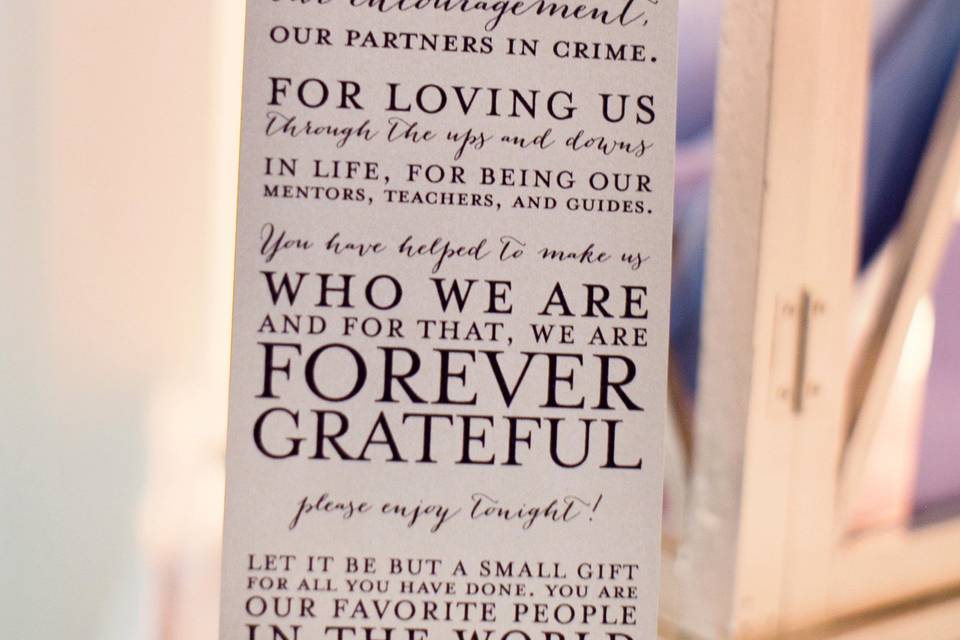 our encouragement,
OUR PARTNERS IN CRIME.
FOR LOVING US
through the ups and downs
IN LIFE, FOR BEING OUR
MENTORS, TEACHERS, AND GUIDES.
You have helped to make us
WHO WE ARE
AND FOR THAT, WE ARE
FOREVER
GRATEFUL
please enjoy tonight!
LET IT BE BUT A SMALL GIFT
FOR ALL YOU HAVE DONE. YOU ARE
OUR FAVORITE PEOPLE
IN THE WORLD